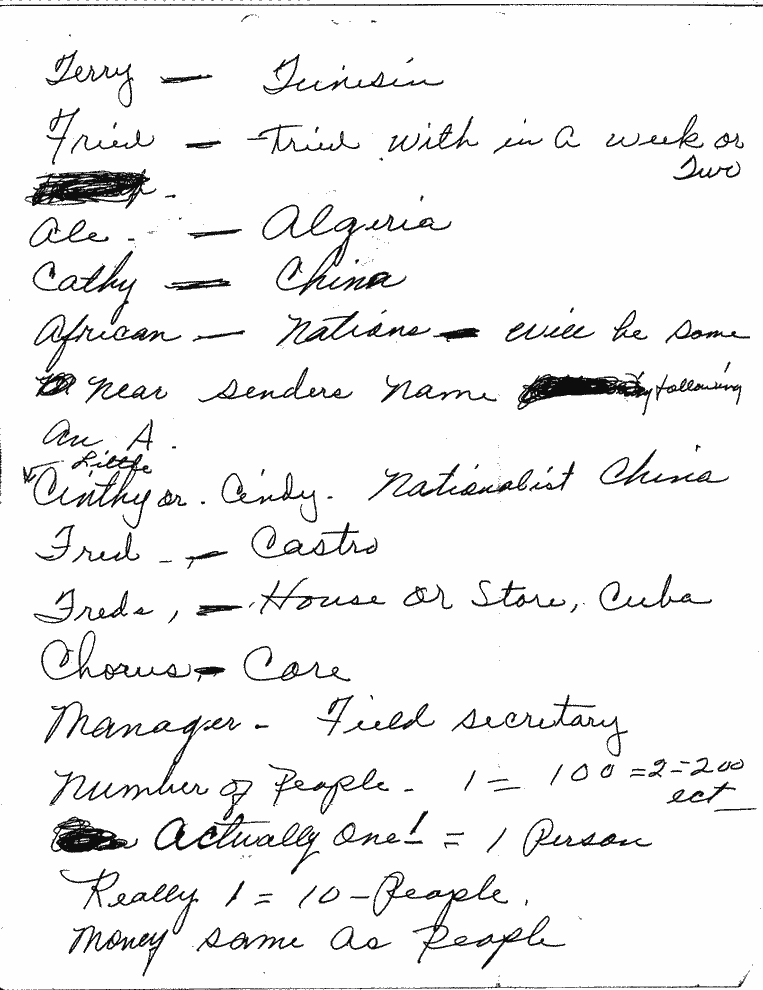 Terry — Tunisia
Fried — Tried with in a week or
Two
Ale. — Algeria
Cathy — China
African — Nations — will be some
near senders name by following
an A.
Little
Cinthy or. Cindy. Nationalist China
Fred - — Castro
Freds, — House or Store, Cuba
Chorus — Core
Manager - Field secretary
Number of People - 1 = 100 = 2 = 200
ect
Actually One! = 1 Person
Really 1 = 10 - People.
Money same as People